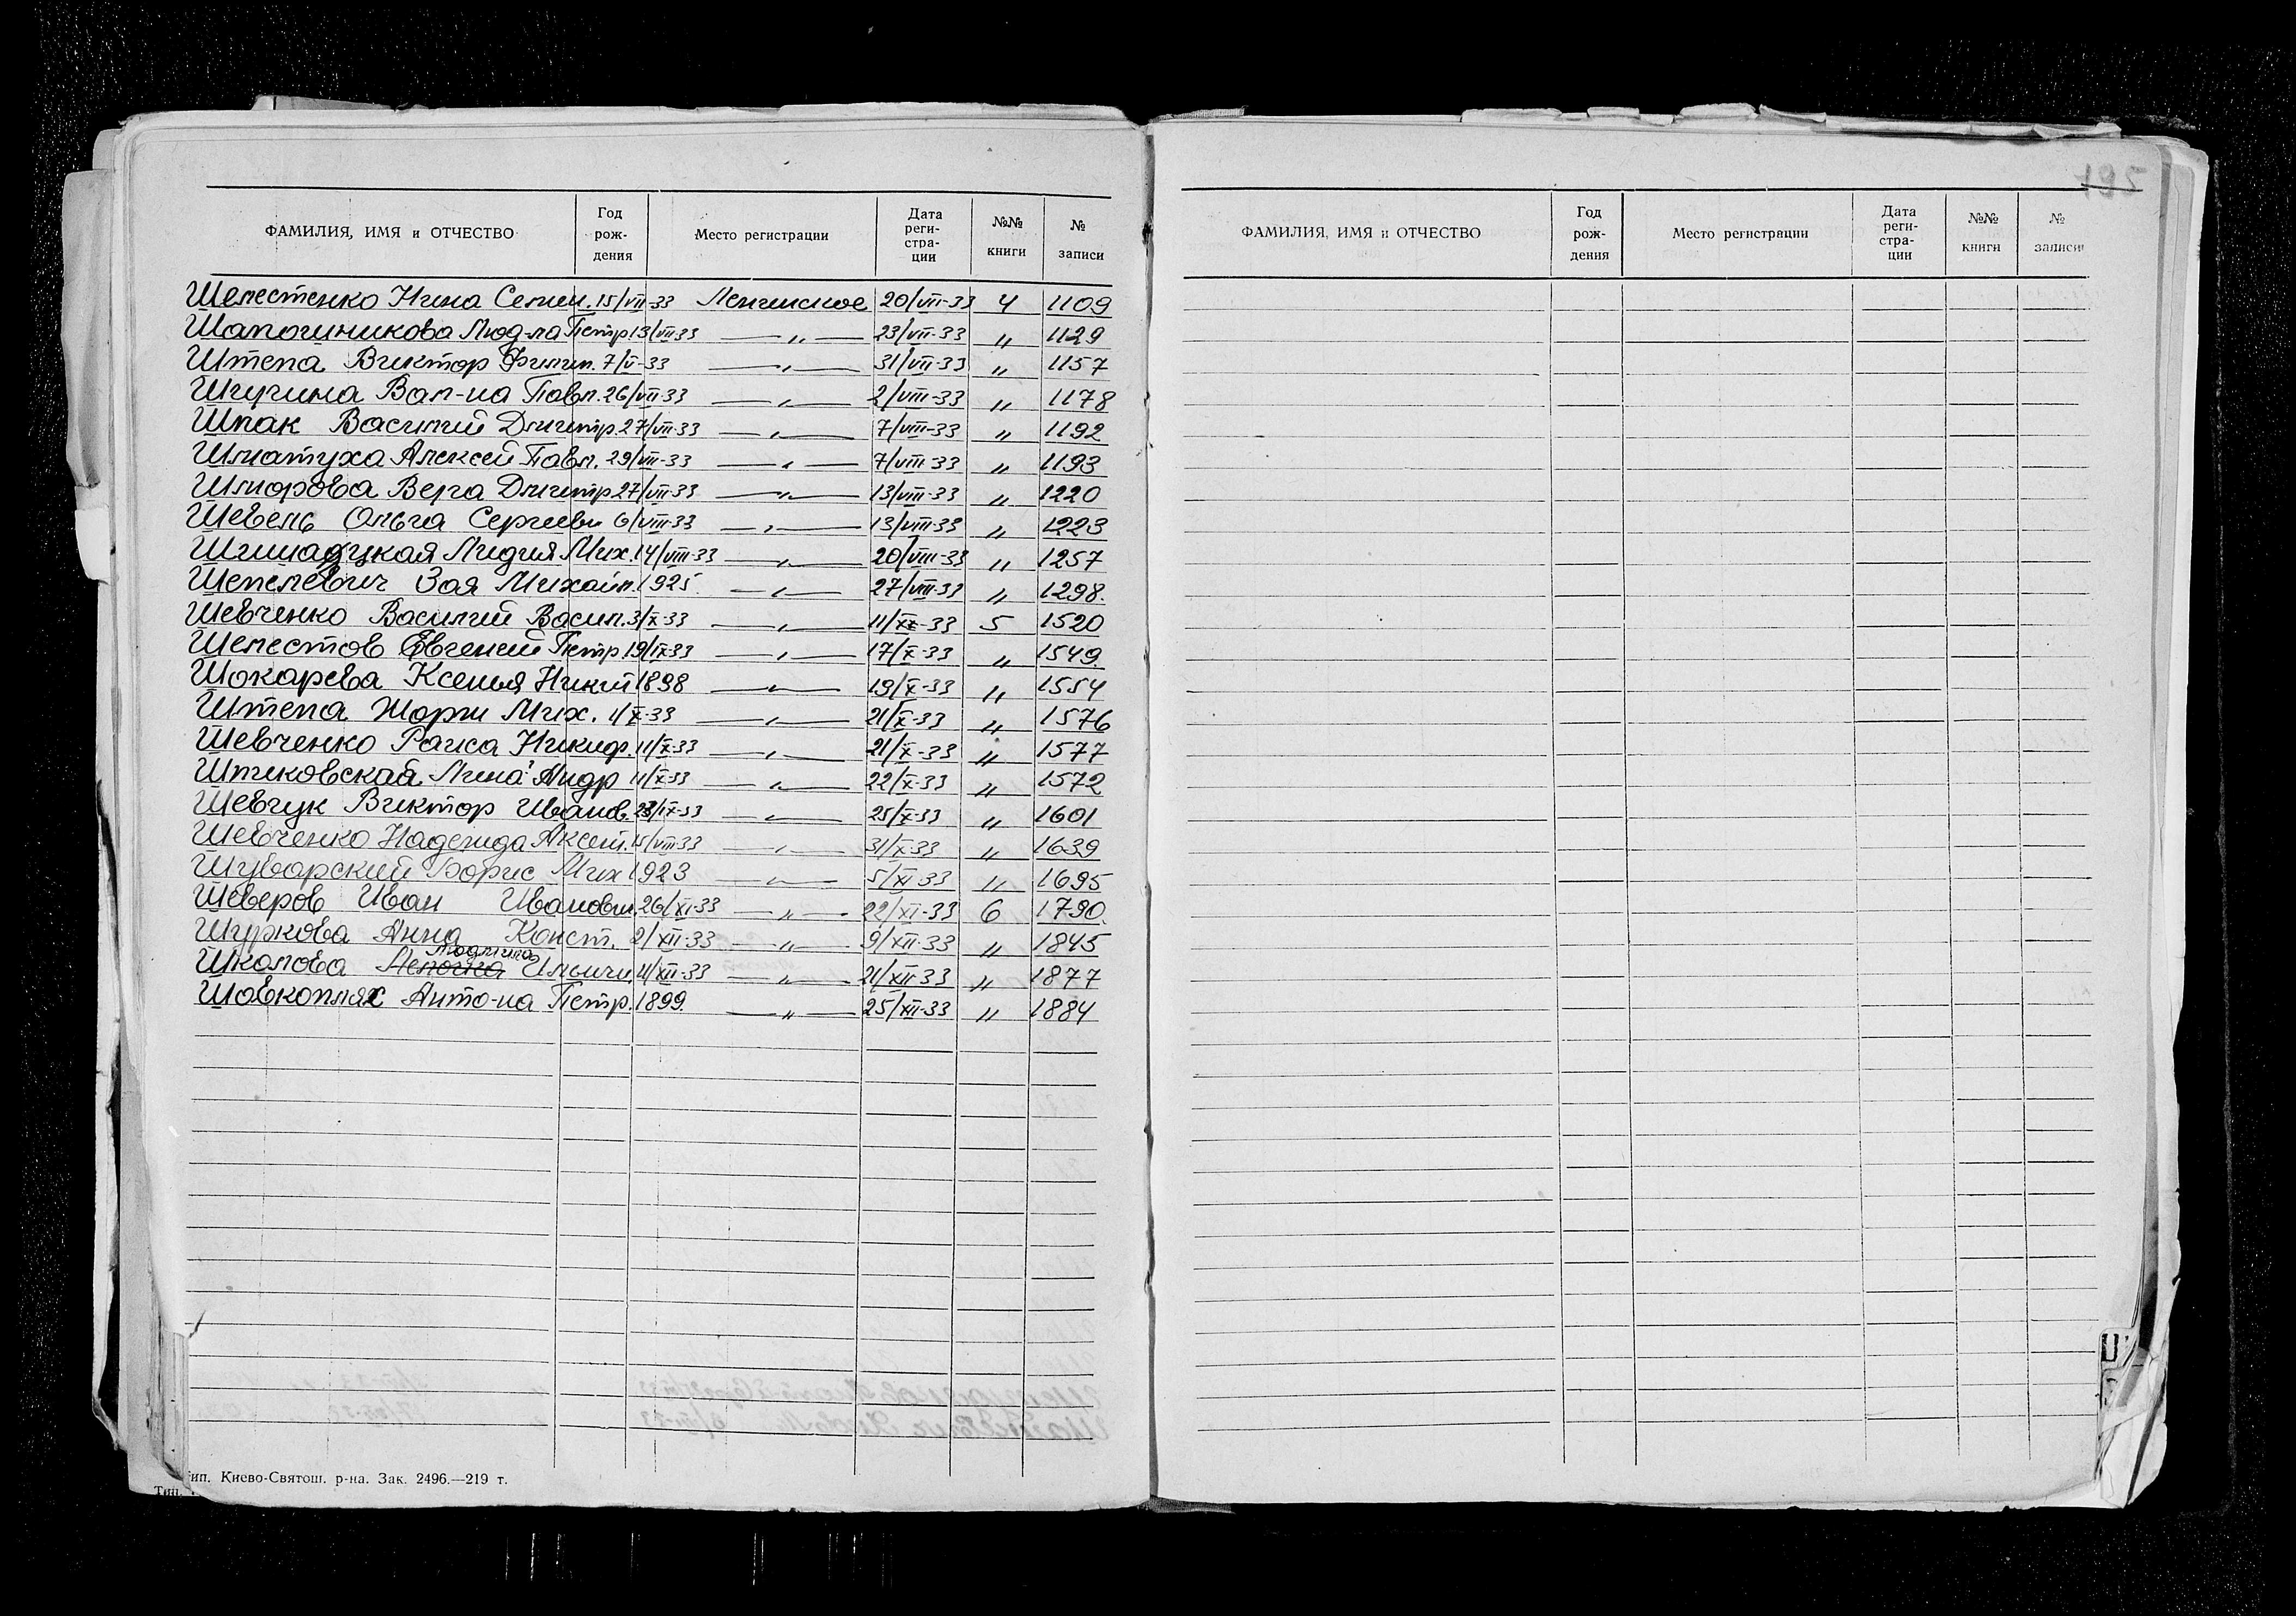 ФАМИЛИЯ, ИМЯ и ОТЧЕСТВО Год рождения Место регистрации Дата регистрации №№ книги № записи
Шелестенко Нина Семен. 15/VII-33 Ленинское 20/VII-33 4 1109
Шапошникова Люд-ла Петр 13/VII-33 —„— 23/VII-33 „ 1129
Штепа Виктор Филип. 7/V-33 —„— 31/VII-33 „ 1157
Шчучина Вал-на Павл. 26/VII-33 —„— 2/VIII-33 „ 1178
Шпак Василий Дмитр. 27/VII-33 —„— 7/VIII-33 „ 1192
Шматуха Алексей Павл. 29/VII-33 —„— 7/VIII-33 „ 1193
Шморова Вера Дмитр 27/VII-33 —„— 13/VIII-33 „ 1220
Шевель Ольга Сергиевн 6/VIII-33 —„— 13/VIII-33 „ 1223
Лидия Мих. 14/VIII-33 —„— 20/VIII-33 „ 1257
Шепелевич Зоя Михайл. 1925. —„— 27/VIII-33 „ 1298.
Шевченко Василий Васил. 3/X-33 —„— 11/X-33 5 1520
Шелестов Евгений Петр. 19/IX-33 —„— 17/X-33 „ 1549.
Шокарева Ксения Никит 1898 —„— 19/X-33 „ 1554
Штепа Жорж Мих. 4/X-33 —„— 21/X-33 „ 1576
Шевченко Раиса Никиф. 11/X-33 —„— 21/X-33 „ 1577
Штиковская Лина Андр 11/X-33 —„— 22/X-33 „ 1572
Шевчук Виктор Иванов. 23/IX-33 —„— 25/X-33 „ 1601
Шевченко Надежда Аксен. 15/VIII-33 —„— 31/X-33 „ 1639
Шуварский Борис Мих 1923 —„— 5/XI-33 „ 1695
Шеверов Иван Иванович 26/XI-33 —„— 22/XI-33 6 1790.
Шуркова Анна Конст. 2/XII-33 —„— 9/XII-33 „ 1845
Людмила
Школова Леночка Ильичн. 4/XII-33 —„— 21/XII-33 „ 1877
Шовкопляс Анто-на Петр. 1899. —„— 25/XII-33 „ 1884
ип. Киево-Святош. р-на. Зак. 2496.—219 т.
Тип.
ФАМИЛИЯ, ИМЯ и ОТЧЕСТВО Год рождения Место регистрации Дата регистрации №№ книги № записи